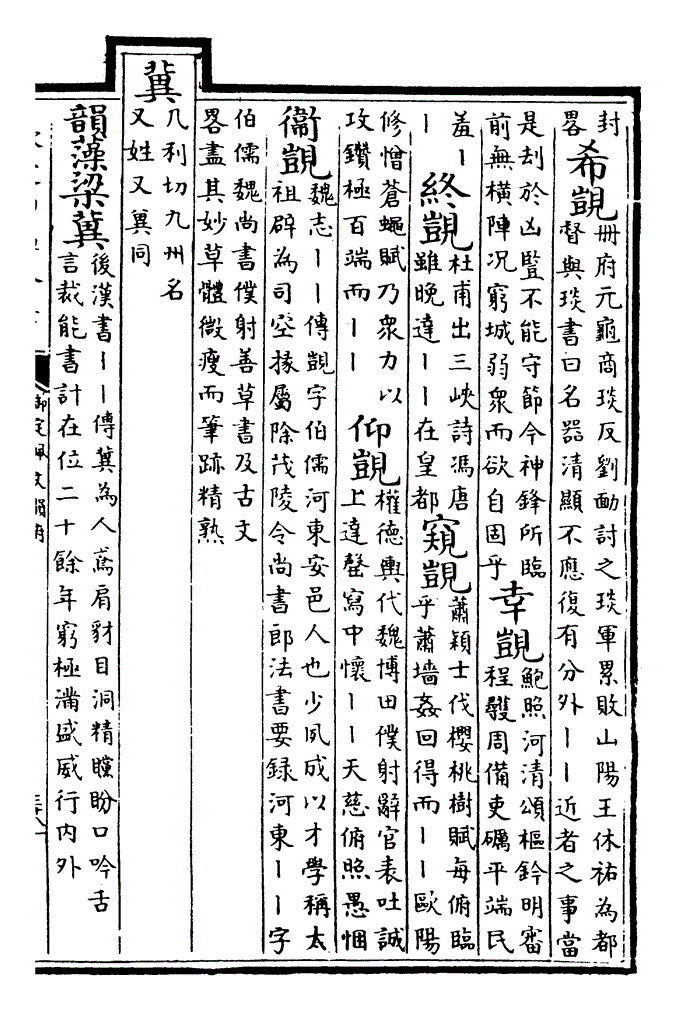 封畧希覬冊府元龜商琰反劉勔討之琰軍累敗山陽王休祐為都
督與琰書曰名器清顯不應復有分外丨丨近者之事當
是刦於凶豎不能守節今神鋒所臨
前無橫陣况窮城弱衆而欲自固乎幸覬鮑照河清頌樞鈐明審
程覬周備吏礪平端民
羞丨
丨終覬杜甫出三峽詩馮唐
雖晚達丨丨在皇都窺覬蕭穎士伐櫻桃樹賦每俯臨
乎蕭墻姦回得而丨丨歐陽
修憎蒼蠅賦乃衆力以
攻鑽極百端而丨丨仰覬權德輿代魏博田僕射辭官表吐誠
上達罄寫中懷丨丨天慈俯照愚悃
衞覬魏志丨丨傳覬字伯儒河東安邑人也少夙成以才學稱太
祖辟為司空掾屬除茂陵令尚書郎法書要録河東丨丨字
伯儒魏尚書僕射善草書及古文
畧盡其妙草體微瘦而筆跡精熟
冀
几利切九州名
又姓又兾同
韻藻梁冀後漢書丨丨傳冀為人鳶肩豺目洞精矘盼口吟舌
言裁能書計在位二十餘年窮極滿盛威行内外
御定佩文韻府